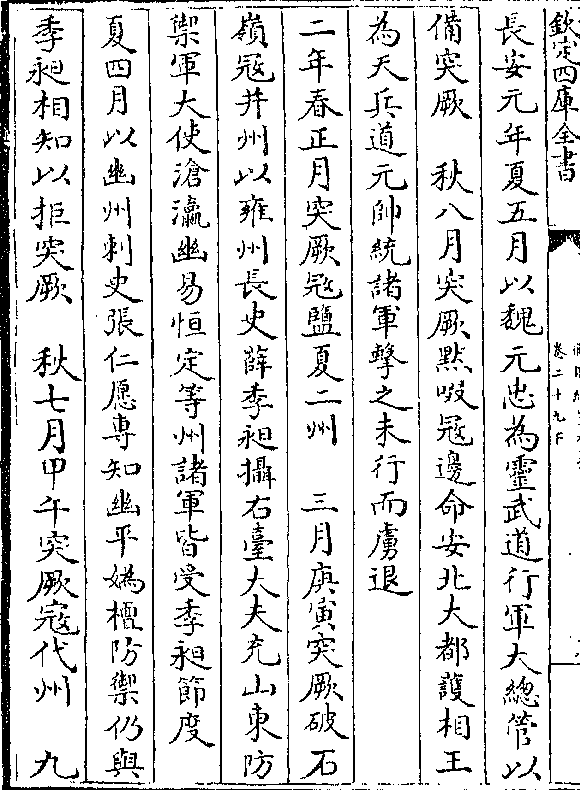 欽定四庫全書
卷二十九下
長安元年夏五月以魏元忠為靈武道行軍大總管以
備突厥　秋八月突厥黙啜冦邊命安北大都護相王
為天兵道元帥統諸軍擊之未行而虜退
二年春正月突厥冦鹽夏二州　三月庚寅突厥破石
嶺冦并州以雍州長史薛季昶攝右臺大夫充山東防
禦軍大使滄瀛幽易恒定等州諸軍皆受季昶節度
夏四月以幽州刺史張仁愿專知幽平媯檀防禦仍與
季昶相知以拒突厥　秋七月甲午突厥寇代州　九